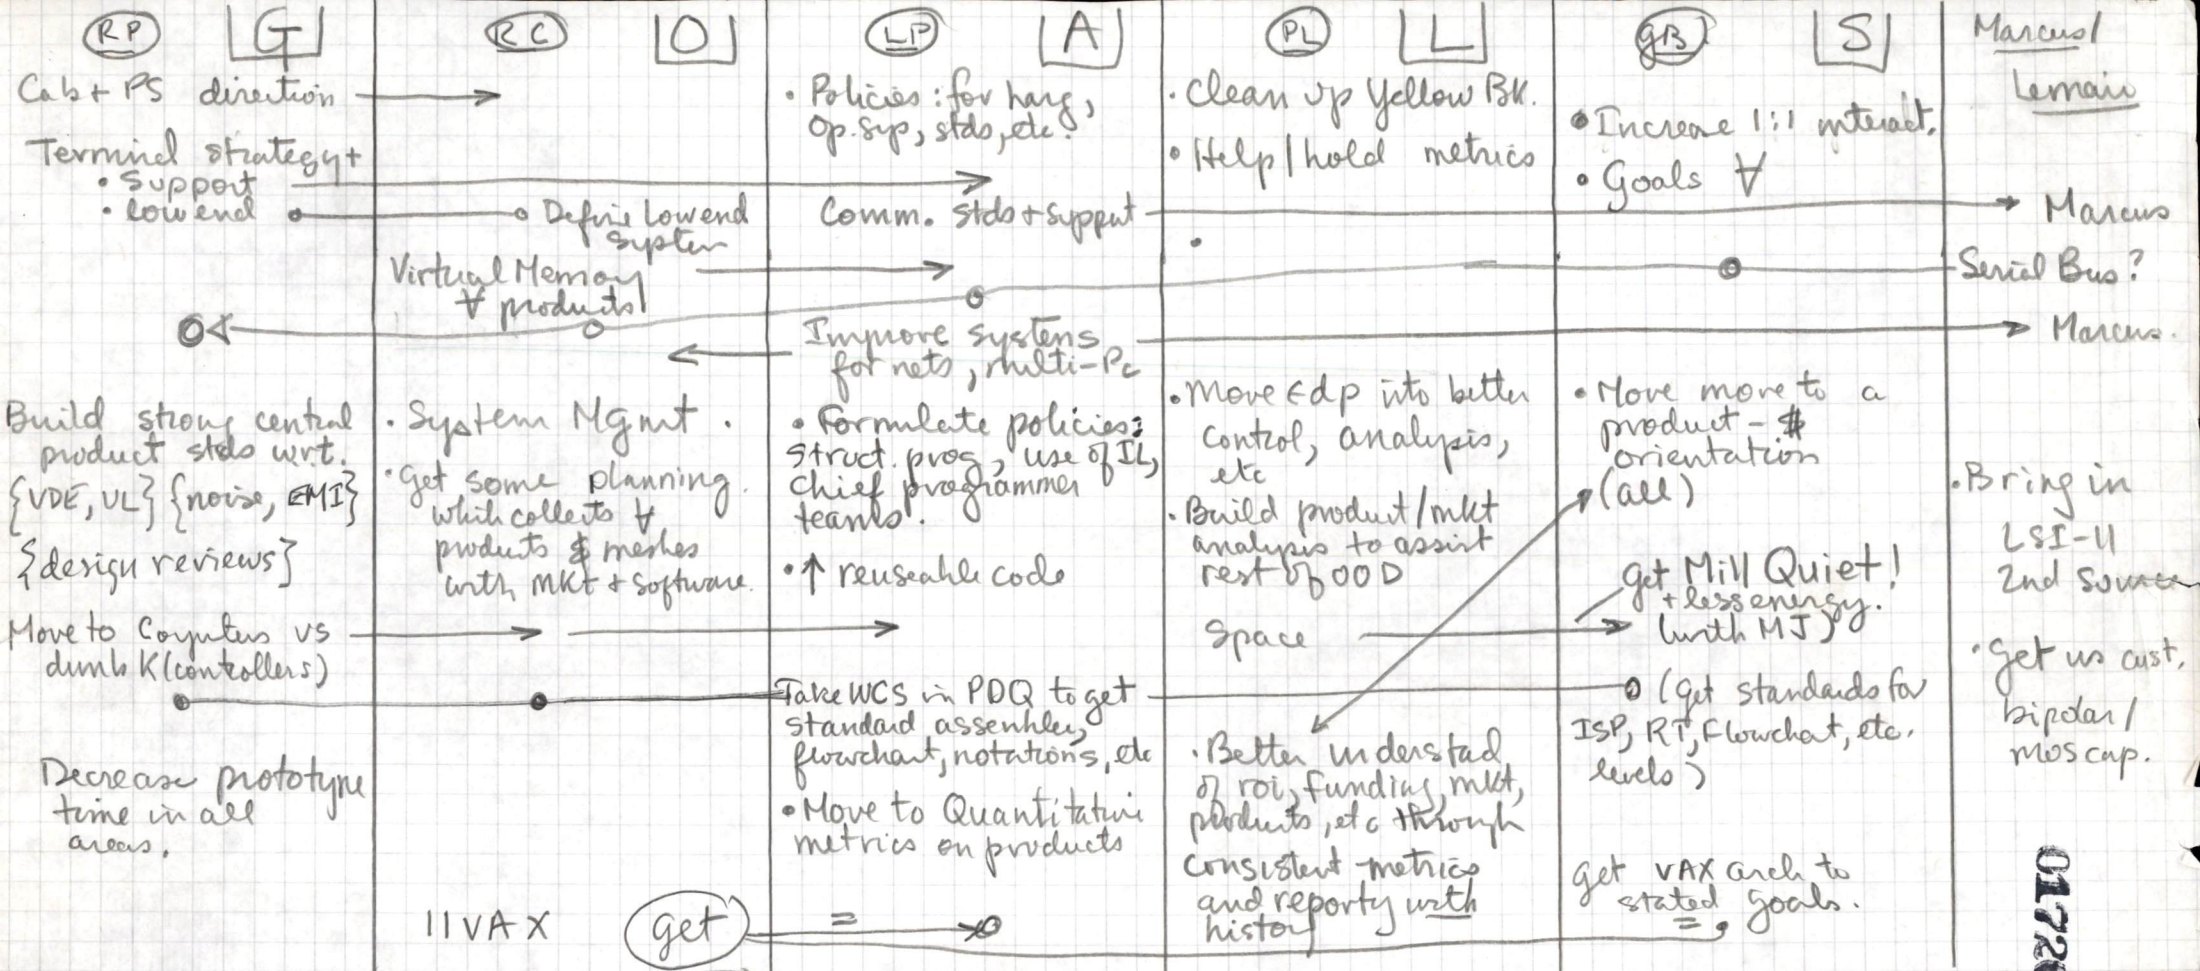 RP G
Cab + PS direction
Terminal strategy +
• Support
• low end
Build strong central
product stds w.r.t.
{VDE, UL} {noise, EMI}
{design reviews}
Move to Computers vs
dumb K (controllers)
Decrease prototype
time in all
areas.
RC O
Define low end
system
Virtual Memory
∀ products
• System Mgmt.
• Get some planning
which collects ∀
products & meshes
with mkt + software.
11 VAX get
LP A
• Policies: for hang,
Op. sys, stds, etc.
Comm. stds + support
Improve systems
for nets, multi-Pc
• Formulate policies:
struct. prog, use of IL,
chief programmer
teams.
• ↑ reuseable code
Take WCS in PDQ to get
standard assembler,
flowchart, notations, etc
• Move to Quantitative
metrics on products
=
PL L
• Clean up Yellow BK.
• Help/hold metrics
•
• Move Edp into better
control, analysis,
etc
• Build product/mkt
analysis to assist
rest of OOD
Space
• Better understad
of roi, funding, mkt,
products, etc through
consistent metrics
and reporty with
history
GB S
• Increase 1:1 interact.
• Goals ∀
• Move more to a
product - $
orientation
(all)
get Mill Quiet!
+ less energy.
(with MJ)
(get standards for
ISP, RT, Flowchart, etc.
levels)
get VAX arch to
stated goals.
=
Marcus/
Lemair
Marcus
Serial Bus?
Marcus.
• Bring in
LSI-11
2nd Source
• get us cust.
bipolar/
mos cap.
0172